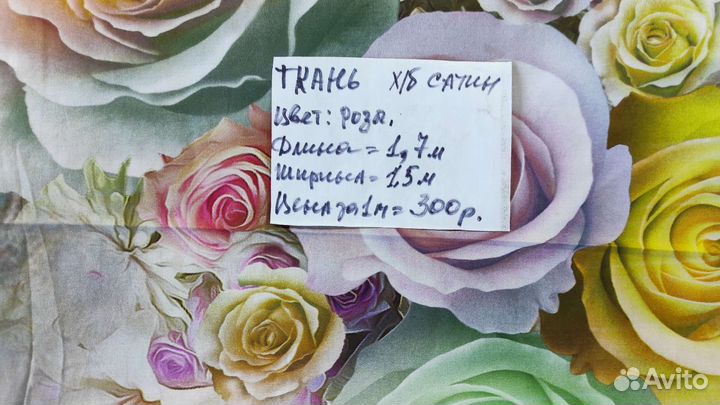 ТКАНЬ х/б САТИН
Цвет: Роза.
Длина = 1,7м
Ширина = 1.5м
Цена за 1м = 300р.
Avito